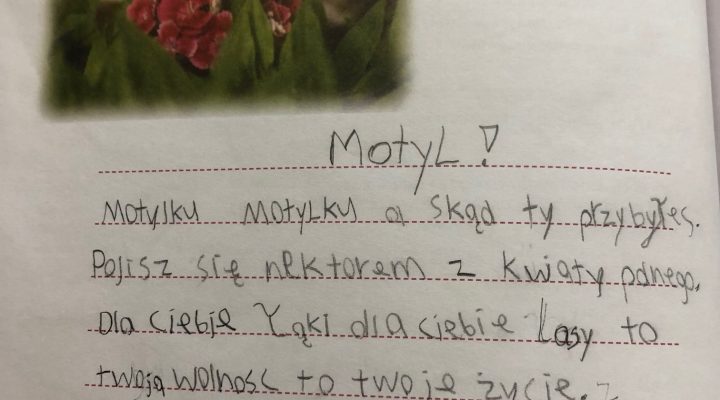 Motyl!
Motylku Motylku a skąd ty przybyłeś.
Poisz się nektorem z kwiaty pdnego.
Dla ciebie Łąki dla ciebie Lasy to
twoja wolnosc to twoje życie.